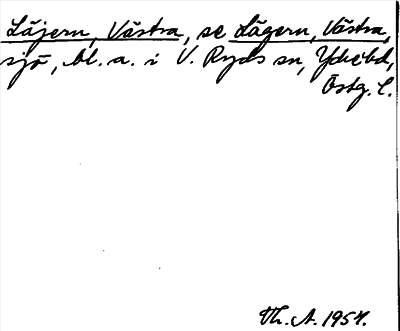 Läjern, Västra, se Lägern, Västra,
sjö, bl. a. i V. Ryds sn, Ydre hd,
Östg. l.
Th. A. 1954.